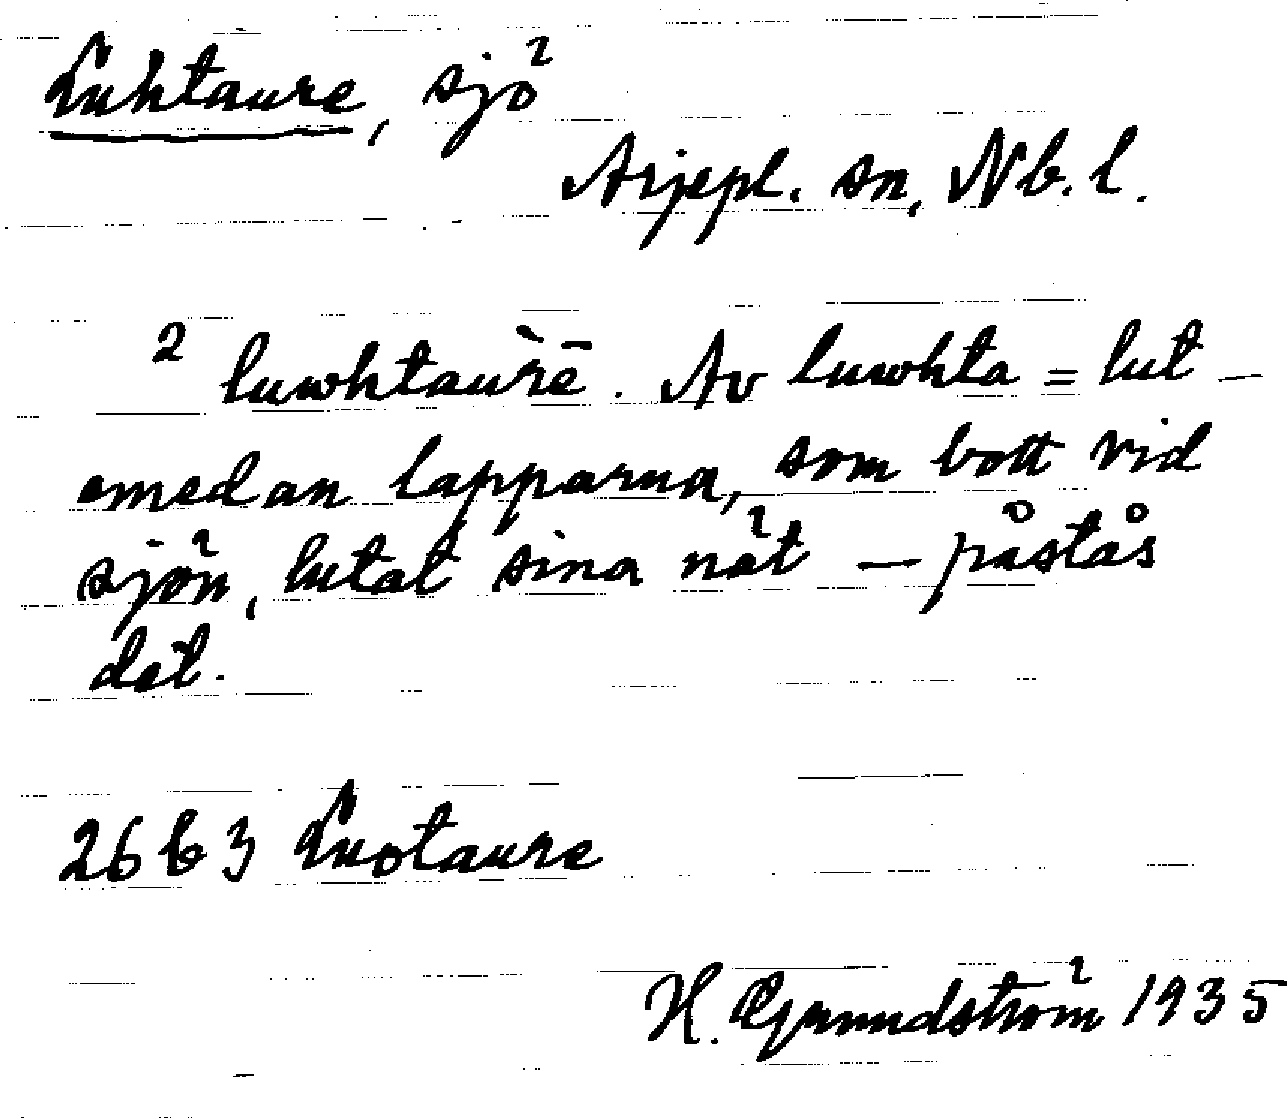 Luhtaure, sjö
Arjepl. sn, Nb. l.
2 luwhtaùrē. Av luwhta = lut –
emedan lapparna, som bott vid
sjön, lutat sina nät – påstås
det.
26 b 3 Luotaure
H. Grundström 1935